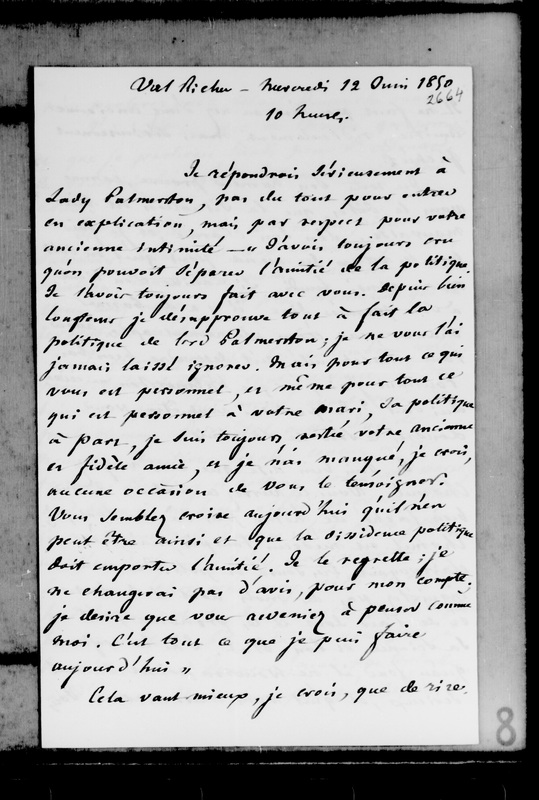 Val Richer – Mercredi 12 Juin 1850
2664
10 heures.
Je répondrois sérieusement à
Lady Palmerston, pas du tout pour entrer
en explication, mais par respect pour votre
ancienne intimité – "J'avois toujours cru
qu'on pouvoit séparer l'amitié de la politique.
Je l'avois toujours fait avec vous. Depuis bien
longtems je désapprouve tout à fait la
politique de lord Palmerston; je ne vous l'ai
jamais laissé ignorer. Mais pour tout ce qui
vous est personnel, et même pour tout ce
qui est personnel à votre mari, sa politique
à part, je suis toujours restée votre ancienne
et fidèle amie, et je n'ai manqué, je crois,
aucune occasion de vous le témoigner.
Vous semblez croire aujourd'hui qu'il n'en
peut être ainsi et que la dissidence politique
doit emporter l'amitié. Je le regrette; je
ne changerai pas d'avis, pour mon compte;
je desire que vous reveniez à penser comme
moi. C'est tout ce que je puis faire
aujourd'hui"
Cela vaut mieux, je crois, que de rire.
8